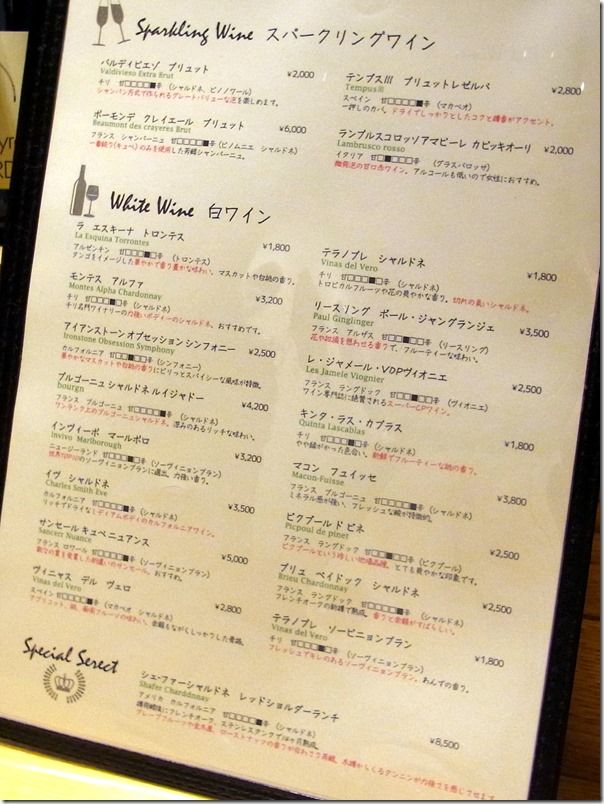 Sparkling Wine スパークリングワイン
バルディビエゾ ブリュット
Valdivieso Extra Brut ¥2,000
チリ 甘□□□□■辛 (シャルドネ、ピノノワール)
シャンパン方式で作られるグレートバリューな泡を楽しめます。
ボーモンデ クレイエール ブリュット
Beaumont des crayeres Brut ¥6,000
フランス シャンパーニュ 甘□□□□■辛 (ピノムニエ シャルドネ)
一番搾り(キュベ)のみを使用した芳醇シャンパーニュ。
テンプスⅢ ブリュットレゼルバ
TempusⅢ ¥2,800
スペイン 甘□□□□■辛 (マカベオ)
一押しのカバ。ドライでしっかりとしたコクと樽香がアクセント。
ランブルスコロッソアマビーレ カビッキオーリ
Lambrusco rosso ¥2,000
イタリア (グラスパロッサ)
微発泡の甘口赤ワイン。アルコールも低いので女性におすすめ。
White Wine 白ワイン
ラ エスキーナ トロンテス
La Esquina Torrontes ¥1,800
アルゼンチン 甘□□□■□辛 (トロンテス)
タンゴをイメージした華やかで香り豊かな味わい。マスカットや白桃の香り。
モンテス アルファ
Montes Alpha Chardonnay ¥3,200
チリ (シャルドネ)
チリ名門ワイナリーの力強いボディーのシャルドネ。おすすめです。
アイアンストーン オブセッション シンフォニー
Ironstone Obsession Symphony ¥2,500
カルフォルニア (シンフォニー)
華やかなマスカットや白桃の香りにピリッとスパイシーな風味が特徴。
ブルゴーニュ シャルドネ ルイジャドー
bourgn ¥4,200
フランス ブルゴーニュ (シャルドネ)
ワンランク上のブルゴーニュシャルドネ。深みのあるリッチな味わい。
インヴィーボ マールボロ
Invivo Marlborough ¥3,200
ニュージーランド (ソーヴィニョンブラン)
世界TOP10のソーヴィニョンブランに選出。力強い香り。
イヴ シャルドネ
Charles Smith Eve ¥3,500
カルフォルニア (シャルドネ)
リッチでドライなミディアムボディのカルフォルニアワイン。
サンセール キュベ ニュアンス
Sancerr Nuance ¥5,000
フランス ロワール (ソーヴィニョンブラン)
ヴィニャス デル ヴェロ
Vinas del Vero ¥2,800
スペイン (マカベオ シャルドネ)
テラノブレ シャルドネ
Vinas del Vero ¥1,800
チリ (シャルドネ)
トロピカルフルーツや花の爽やかな香り。切れの良いシャルドネ。
リースリング ポール・ジャングランジェ
Paul Ginglinger ¥3,500
フランス アルザス (リースリング)
花や柑橘を想わせる香りで、フルーティーな味わい。
レ・ジャメール・VDPヴィオニエ
Les Jamele Viognier ¥2,500
フランス ラングドック (ヴィオニエ)
ワイン専門誌に絶賛されるスーパーCPワイン。
キンタ・ラス・カブラス
Quinta Lascablas ¥1,800
チリ (シャルドネ)
やや緑がかった色合い。新鮮でフルーティーな桃の香り。
マコン フュイッセ
Macon-Fuisse ¥3,800
フランス ブルゴーニュ (シャルドネ)
ミネラル感が強い、フレッシュな酸が特徴的。
ピクプールド ピネ
Picpoul de pinet ¥2,500
フランス ラングドック (ピクプール)
ピクプールという珍しい地場品種。とても爽やかな印象です。
ブリュ ベイドック シャルドネ
Brieu Chardonnay ¥2,500
フランス ラングドック (シャルドネ)
フレンチオークの熟樽で熟成。香りと余韻がすばらしい。
テラノブレ ソービニョンブラン
Vinas del Vero ¥1,800
チリ (ソーヴィニョンブラン)
フレッシュでキレのあるソーヴィニョンブラン。あんずの香り。
Special Serect
シェ・ファーシャルドネ レッドショルダーランチ
Shafer Charddnnay ¥8,500
アメリカ カルフォルニア (シャルドネ)